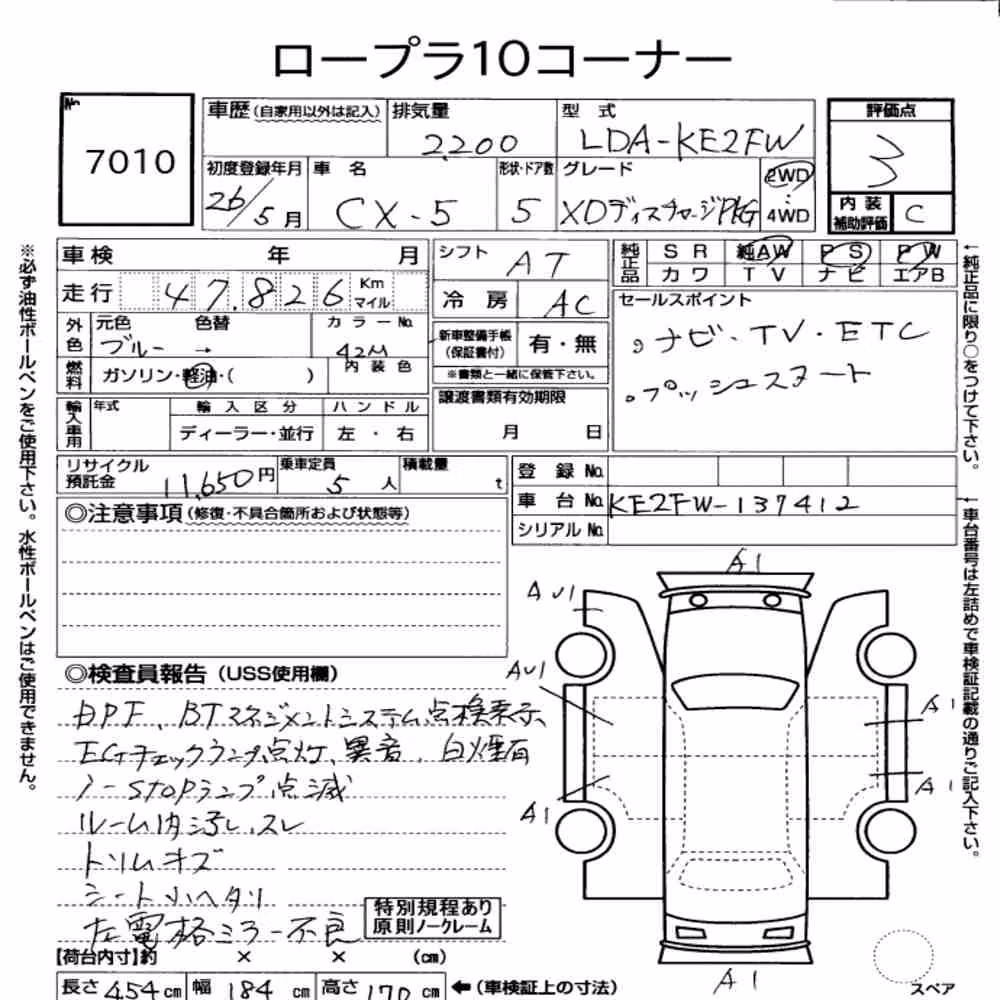 ロープラ10コーナー
No.
7010
車歴(自家用以外は記入)
排気量
2,200
型 式
LDA-KE2FW
評価点
3
初度登録年月
26/5月
車 名
CX-5
形状・ドア数
5
グレード
XDディスチャージPKG
2WD
:
4WD
内 装
補助評価
C
車検 年 月
走行 47.826 Km
マイル
シフト AT
冷 房 AC
純正品
SR 純AW PS PW
カワ TV ナビ エアB
外色
元色 色替
ブルー →
カラーNo.
42M
燃料
ガソリン・軽油・( )
内 装 色
新車整備手帳
(保証書付)
有・無
※書類と一緒に保管下さい。
セールスポイント
。ナビ・TV・ETC
。プッシュスタート
輸入車用
年式
輸入区分
ディーラー・並行
ハンドル
左・右
譲渡書類有効期限
月 日
リサイクル
預託金
11,650円
乗車定員
5人
積載量
t
登 録 No.
車 台 No. KE2FW-137412
シリアル No.
◎注意事項(修復・不具合箇所および状態等)
◎検査員報告(USS使用欄)
DPF、BTマネジメントシステム点検表示
EGチェックランプ点灯、異音、白煙有
i-STOPランプ点滅
ルーム内汚れ、スレ
トリムキズ
シート小ヘタリ
左電格ミラー不良
特別規程あり
原則ノークレーム
【荷台内寸】約 × × (cm)
長さ 454 cm 幅 184 cm 高さ 170 cm ←(車検証上の寸法)
A1
AU1
AU1
A1
A1
A1
A1
スペア
※必ず油性ボールペンをご使用下さい。水性ボールペンはご使用できません。
←純正品に限り○をつけて下さい。
←車台番号は左詰めで車検証記載の通りご記入下さい。